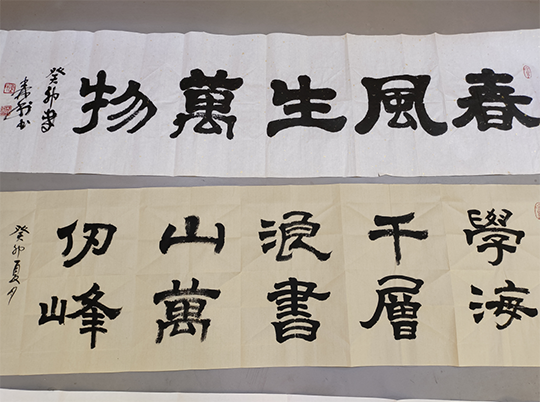 春風生萬物
癸卯
學海
千層
浪書
山萬
仞峰
癸卯夏月